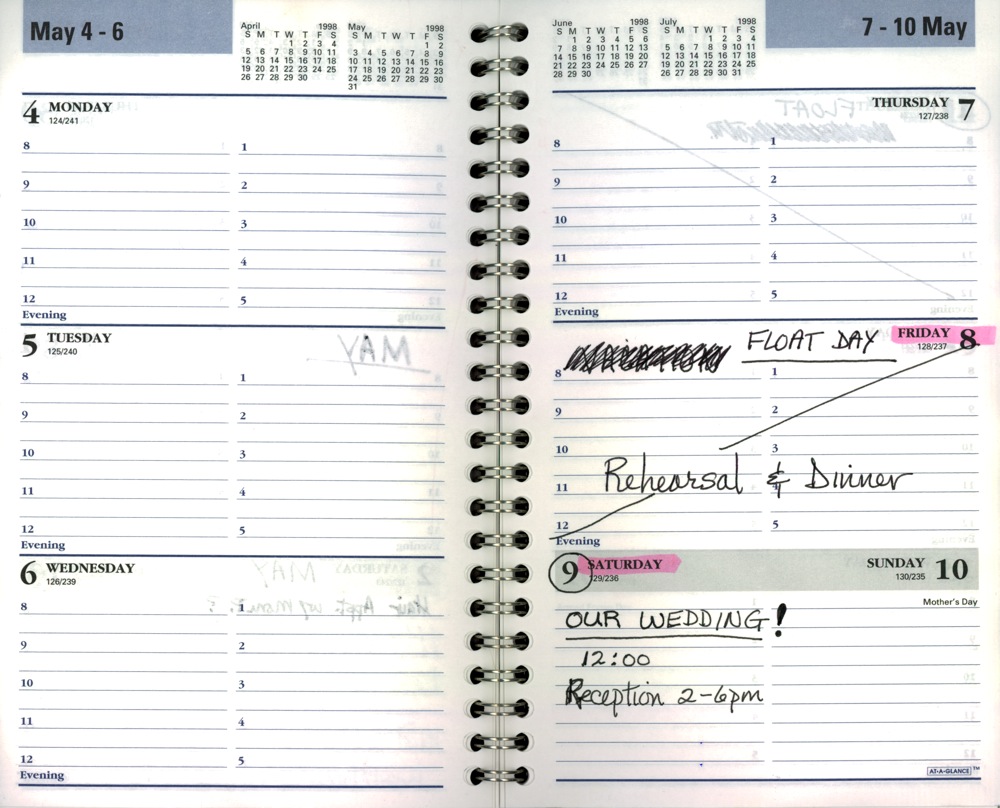 May 4 - 6
April 1998
S M T W T F S
1 2 3 4
5 6 7 8 9 10 11
12 13 14 15 16 17 18
19 20 21 22 23 24 25
26 27 28 29 30
May 1998
S M T W T F S
1 2
3 4 5 6 7 8 9
10 11 12 13 14 15 16
17 18 19 20 21 22 23
24 25 26 27 28 29 30
31
4 MONDAY
124/241
8 1
9 2
10 3
11 4
12 5
Evening
5 TUESDAY
125/240
MAY
8 1
9 2
10 3
11 4
12 5
Evening
6 WEDNESDAY
126/239
MAY
8 1
Hair Appt. w/ Mom
9 2
10 3
11 4
12 5
Evening
June 1998
S M T W T F S
1 2 3 4 5 6
7 8 9 10 11 12 13
14 15 16 17 18 19 20
21 22 23 24 25 26 27
28 29 30
July 1998
S M T W T F S
1 2 3 4
5 6 7 8 9 10 11
12 13 14 15 16 17 18
19 20 21 22 23 24 25
26 27 28 29 30 31
7 - 10 May
THURSDAY 7
127/238
FLOAT
8 1
9 2
10 3
11 4
12 5
Evening
FLOAT DAY
FRIDAY 8
128/237
8 1
9 2
10 3
Rehearsal & Dinner
11 4
12 5
Evening
9 SATURDAY
129/236
SUNDAY 10
130/235
Mother's Day
OUR WEDDING!
12:00
Reception 2-6pm
AT-A-GLANCE™